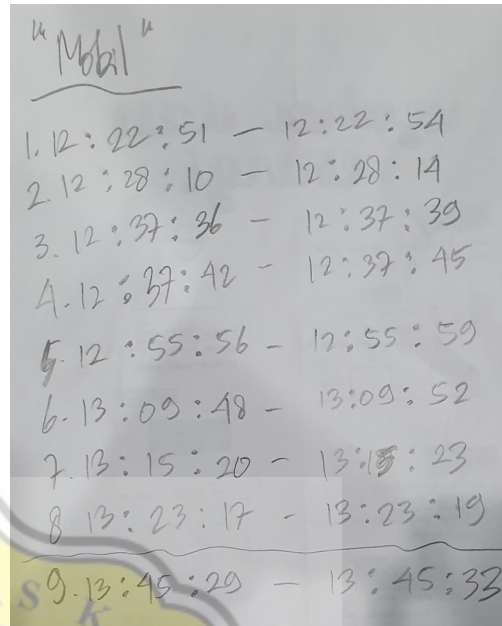 "Mobil"
1. 12:22:51 - 12:22:54
2. 12:28:10 - 12:28:14
3. 12:37:36 - 12:37:39
4. 12:37:42 - 12:37:45
5. 12:55:56 - 12:55:59
6. 13:09:48 - 13:09:52
7. 13:15:20 - 13:15:23
8 13:23:17 - 13:23:19
9. 13:45:29 - 13:45:33
S K